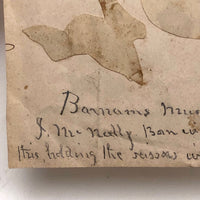 Barnams Mus
J. McNally Ban
this, holding the scissors